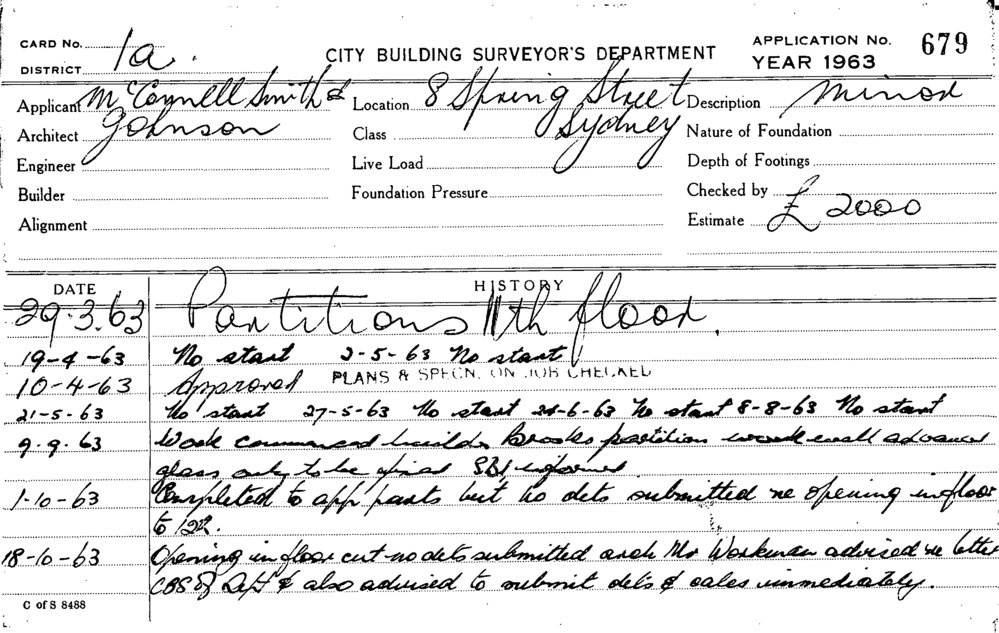 CARD No. 1a.
DISTRICT
CITY BUILDING SURVEYOR'S DEPARTMENT
APPLICATION No. 679
YEAR 1963
Applicant McConnell Smith &
Architect Johnson
Engineer
Builder
Alignment
Location 8 Spring Street
Class Sydney
Live Load
Foundation Pressure
Description Minor
Nature of Foundation
Depth of Footings
Checked by
Estimate £ 2000
DATE HISTORY
29.3.63 Partitions 11th floor.
19-4-63 No start 2-5-63 No start
10-4-63 Approved PLANS & SPECN. ON JOB CHECKED
21-5-63 No start 27-5-63 No start 24-6-63 No start 8-8-63 No start
9.9.63 Work commenced Brooks partition work well advanced
glass only to be SBI informed
1-10-63 Completed to app but no dets submitted re opening in floor
to
18-10-63 Opening in floor cut no dets submitted arch Mr Workman advised re letter
CBS & also advised to submit dets & calcs immediately.
C of S 8488